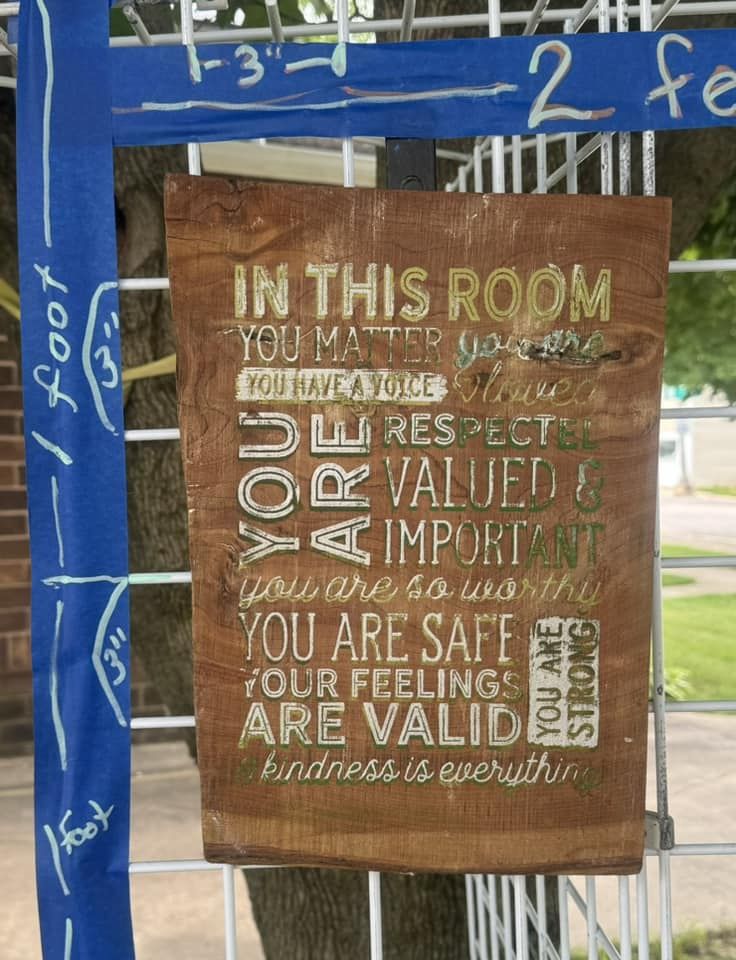 3"
2 fe
1 foot
3"
3"
1 foot
IN THIS ROOM
YOU MATTER you are
YOU HAVE A VOICE loved
YOU ARE
RESPECTED
VALUED &
IMPORTANT
you are so worthy
YOU ARE SAFE
YOUR FEELINGS
ARE VALID
YOU ARE
STRONG
kindness is everything